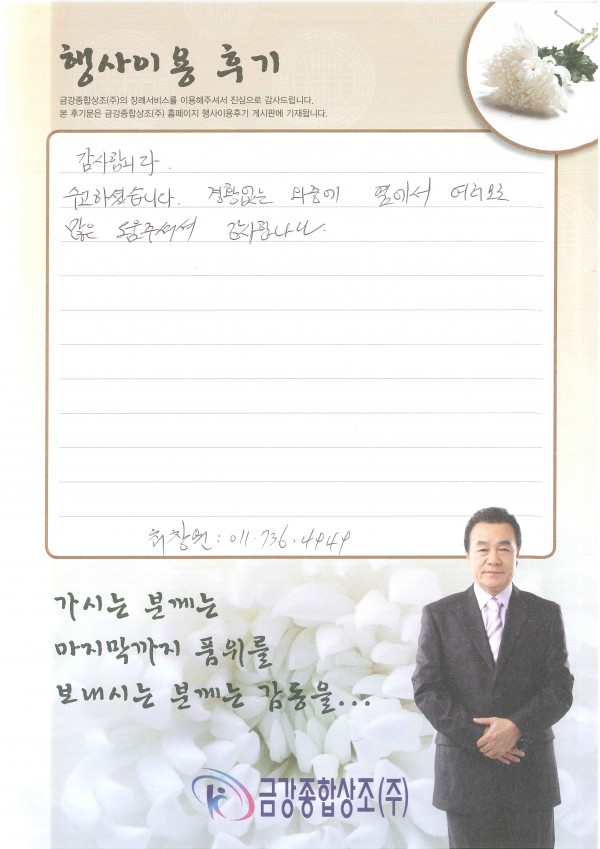 행사이용 후기
금강종합상조(주)의 장례서비스를 이용해주셔서 진심으로 감사드립니다.
본 후기문은 금강종합상조(주) 홈페이지 행사이용후기 게시판에 기재됩니다.
감사합니다.
수고하셨습니다. 경황없는 와중에 옆에서 여러모로
많은 도움주셔서 감사합니다.
최창원 : 011.736.4949
가시는 분께는
마지막까지 품위를
보내시는 분께는 감동을...
금강종합상조(주)